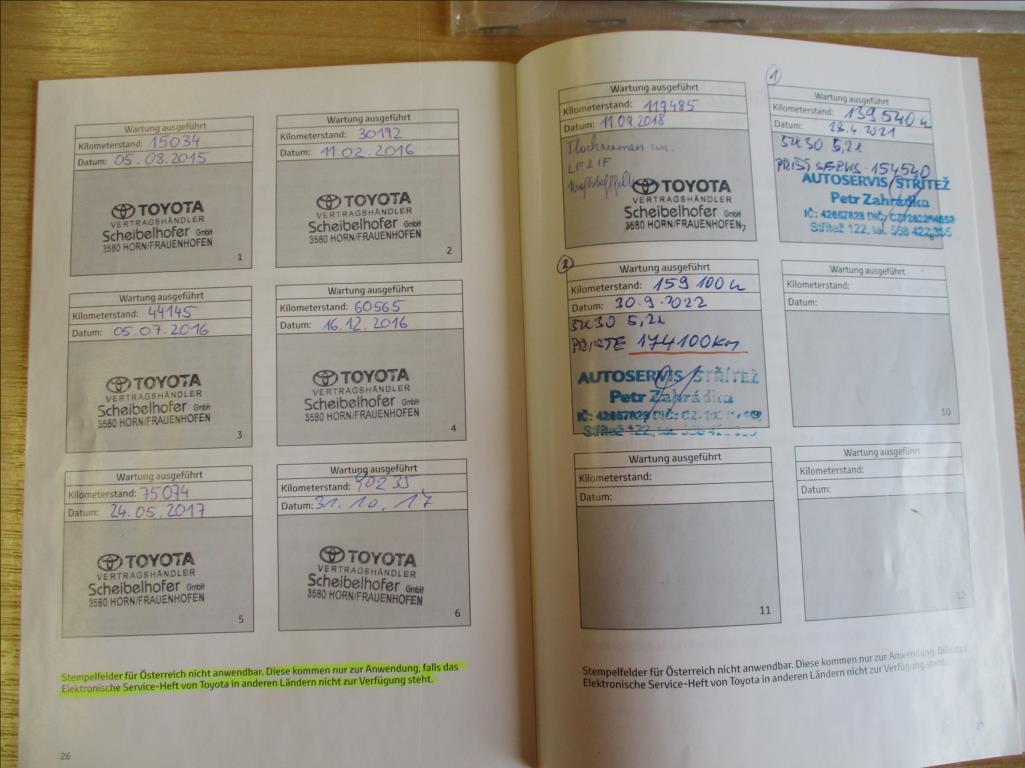 Wartung ausgeführt
Kilometerstand: 15034
Datum: 05.08.2015
TOYOTA
VERTRAGSHÄNDLER
Scheibelhofer GmbH
3580 HORN/FRAUENHOFEN
1
Wartung ausgeführt
Kilometerstand: 30192
Datum: 11.02.2016
TOYOTA
VERTRAGSHÄNDLER
Scheibelhofer GmbH
3580 HORN/FRAUENHOFEN
2
Wartung ausgeführt
Kilometerstand: 44145
Datum: 05.07.2016
TOYOTA
VERTRAGSHÄNDLER
Scheibelhofer GmbH
3580 HORN/FRAUENHOFEN
3
Wartung ausgeführt
Kilometerstand: 60565
Datum: 16.12.2016
TOYOTA
VERTRAGSHÄNDLER
Scheibelhofer GmbH
3580 HORN/FRAUENHOFEN
4
Wartung ausgeführt
Kilometerstand: 75074
Datum: 24.05.2017
TOYOTA
VERTRAGSHÄNDLER
Scheibelhofer GmbH
3580 HORN/FRAUENHOFEN
5
Wartung ausgeführt
Kilometerstand: 90233
Datum: 31.10.17
TOYOTA
VERTRAGSHÄNDLER
Scheibelhofer GmbH
3580 HORN/FRAUENHOFEN
6
Stempelfelder für Österreich nicht anwendbar. Diese kommen nur zur Anwendung, falls das
Elektronische Service-Heft von Toyota in anderen Ländern nicht zur Verfügung steht.
26
Wartung ausgeführt
Kilometerstand: 119485
Datum: 11.09.2018
LF & IF
TOYOTA
VERTRAGSHÄNDLER
Scheibelhofer GmbH
3580 HORN/FRAUENHOFEN
7
1
Wartung ausgeführt
Kilometerstand: 139540
Datum: 28.4.2021
5W30 5,2l
PŘÍŠTÍ SERVIS 154540
AUTOSERVIS STŘÍTEŽ
Petr Zahrádka
IČ: 42667829 DIČ:
Střítež 122, tel.
8
2
Wartung ausgeführt
Kilometerstand: 159100
Datum: 30.9.2022
5W30 5,2l
174100km
AUTOSERVIS STŘÍTEŽ
Petr Zahrádka
IČ: 42667829 DIČ: CZ
Střítež 122, tel.
Wartung ausgeführt
Kilometerstand:
Datum:
10
Wartung ausgeführt
Kilometerstand:
Datum:
11
Wartung ausgeführt
Kilometerstand:
Datum:
12
Stempelfelder für Österreich nicht anwendbar. Diese kommen nur zur Anwendung, falls das
Elektronische Service-Heft von Toyota in anderen Ländern nicht zur Verfügung steht.
27